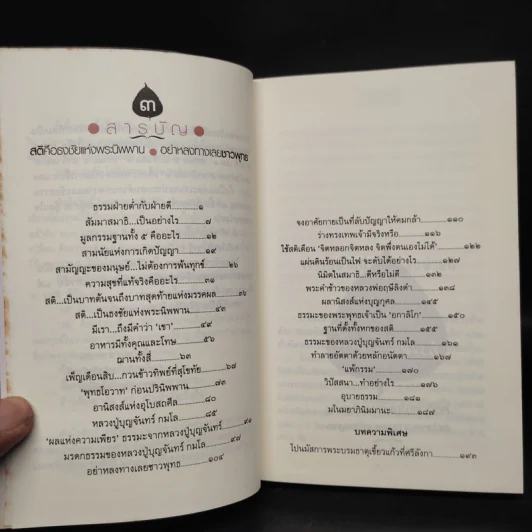 ๓
สารบัญ
สติคือธงชัยแห่งพระนิพพาน ● อย่าหลงทางเลยชาวพุทธ
ธรรมฝ่ายต่ำกับฝ่ายดี.......๑
สัมมาสมาธิ...เป็นอย่างไร.......๗
มูลกรรมฐานทั้ง ๕ คืออะไร.......๑๒
สามนัยแห่งการเกิดปัญญา.......๑๙
สามัญญะของมนุษย์...ไม่ต้องการพ้นทุกข์.......๒๖
ความสุขที่แท้จริงคืออะไร.......๓๑
สติ...เป็นบาทต้นจนถึงบาทสุดท้ายแห่งมรรคผล.......๓๖
สติ...เป็นธงชัยแห่งพระนิพพาน.......๔๓
มีเรา...ถึงมีคำว่า 'เขา'.......๔๙
อาหารมีทั้งคุณและโทษ.......๕๖
ฌานทั้งสี่.......๖๓
เพ็ญเดือนสิบ...กวนข้าวทิพย์ที่สุโขทัย.......๖๗
'พุทธโอวาท' ก่อนปรินิพพาน.......๗๓
อานิสงส์แห่งอุโบสถศีล.......๘๐
หลวงปู่บุญจันทร์ กมโล.......๘๕
'ผลแห่งความเพียร' ธรรมะจากหลวงปู่บุญจันทร์.......๙๑
มรดกธรรมของหลวงปู่บุญจันทร์ กมโล.......๙๗
อย่าหลงทางเลยชาวพุทธ.......๑๐๔
จงอาศัยกายเป็นที่ลับปัญญาให้คมกล้า.......๑๑๐
ร่างทรงเทพเจ้ามีจริงหรือ.......๑๑๖
ใช้สติเตือน 'จิตหลอกจิตหลง จิตพึ่งตนเองไม่ได้'.......๑๒๒
แผ่นดินร้อนเป็นไฟ จะดับได้อย่างไร.......๑๒๗
นิมิตในสมาธิ...ดีหรือไม่ดี.......๑๓๒
พระคำข้าวของหลวงพ่อฤๅษีลิงดำ.......๑๓๘
ผลานิสงส์แห่งบุญกุศล.......๑๔๕
ธรรมะของพระพุทธเจ้าเป็น "อกาลิโก".......๑๕๐
ฐานที่ตั้งทั้งหกของสติ.......๑๕๕
ธรรมะของหลวงปู่บุญจันทร์ กมโล.......๑๖๑
ทำลายอัตตาด้วยหลักอนัตตา.......๑๖๗
"แพ้กรรม".......๑๗๐
วิปัสสนา...ทำอย่างไร.......๑๗๖
อุบายธรรม.......๑๘๑
มโนมยาภินิมมานะ.......๑๘๗
บทความพิเศษ
ไปนมัสการพระบรมธาตุเขี้ยวแก้วที่ศรีลังกา.......๑๙๓